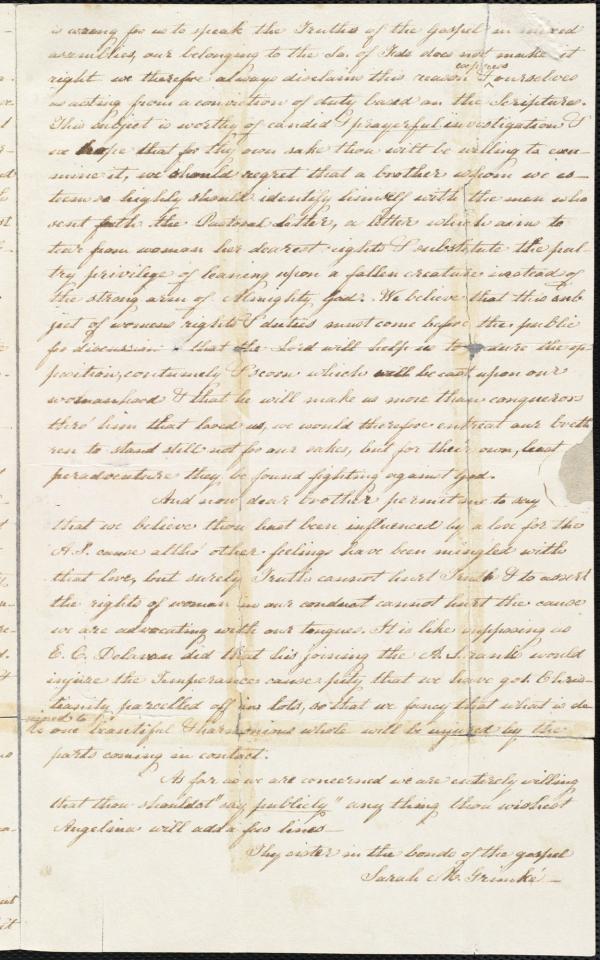 is wrong for us to speak the Truths of the Gospel in mixed
assemblies, our belonging to the So. of Fds does not make it
right we therefore always disclaim this reason & express ourselves
as acting from a conviction of duty based on the Scriptures.
This subject is worthy of candid & prayerful investigation &
we hope that for thy own sake thou wilt be willing to exa-
mine it, we should regret that a brother whom we es-
teem so highly should identify himself with the men who
sent forth the Pastoral Letter, a letter which aims to
tear from woman her dearest rights & substitute the pal-
try privilege of leaning upon a fallen creature instead of
the strong arm of Almighty God. We believe that this sub
ject of womens rights & duties must come before the public
for discussion & that the Lord will help us to endure the op
position, contumely & scorn which will be cast upon our
womanhood & that he will make us more than conquerors
thro' him that loved us, we would therefore entreat our breth
ren to stand still not for our sakes, but for their own, least
peradventure they be found fighting against God.
And now dear brother permit me to say
that we believe thou hast been influenced by a love for the
A.S. cause altho' other feelings have been mingled with
that love, but surely Truth cannot hurt Truth & to assert
the rights of woman in our conduct cannot hurt the cause
we are advocating with our tongues. It is like supposing as
E. C. Delavan did that his joining the A.S. rank would
injure the Temperance cause, pity that we have got Chris-
tianity parcelled off in lots, so that we fancy that what is de
signed to be one beautiful & harmonious whole will be injured by the
parts coming in contact.
As far as we are concerned we are entirely willing
that thou shouldst "say publicly" any thing thou wishest
Angelina will add a few lines—
Thy sister in the bonds of the gospel
Sarah M. Grimké—